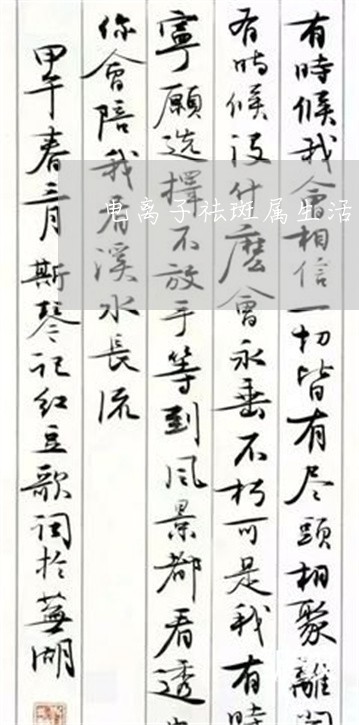 有時候我會相信一切皆有尽頭相聚離開
有時候没什麽會永垂不朽可是我有時
寧願选擇不放手等到风景都看透
你會陪我看溪水長流
甲午春三月斯琴记红豆歌词於蕪湖
电离子祛斑属生活